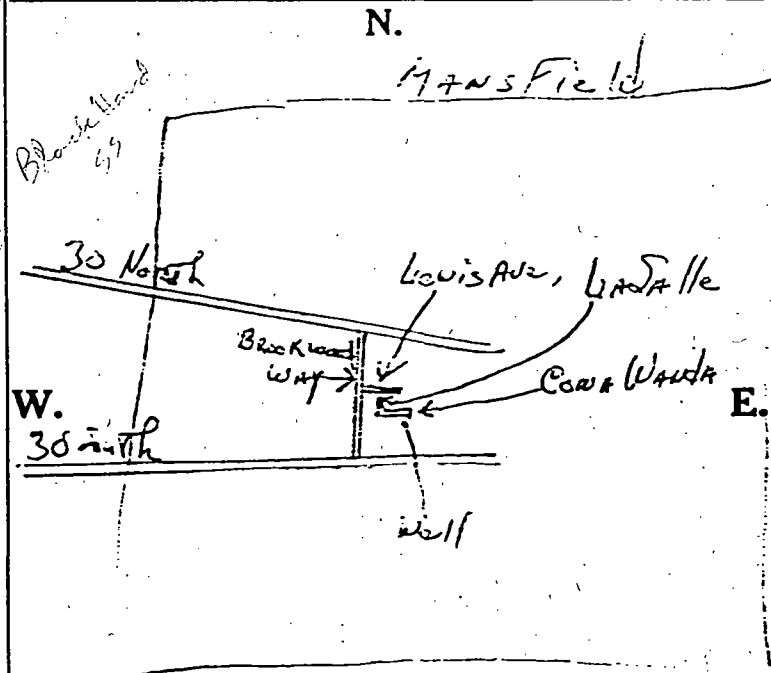 N.
MANSField
30 North
Louis Ave,
LaSalle
Brookwood
Way
Cona Wanda
W.
E.
30 South
Well